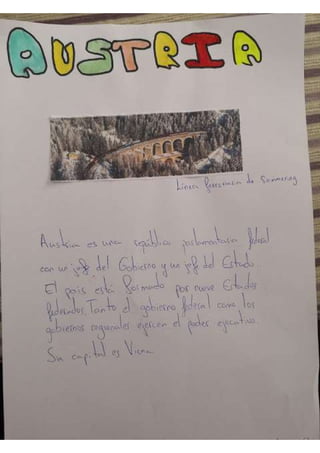 AUSTRIA
Línea ferroviaria de Semmering
Austria es una república parlamentaria federal
con un jefe del Gobierno y un jefe del Estado.
El país está formado por nueve Estados
federados. Tanto el gobierno federal como los
gobiernos regionales ejercen el poder ejecutivo.
Su capital es Viena